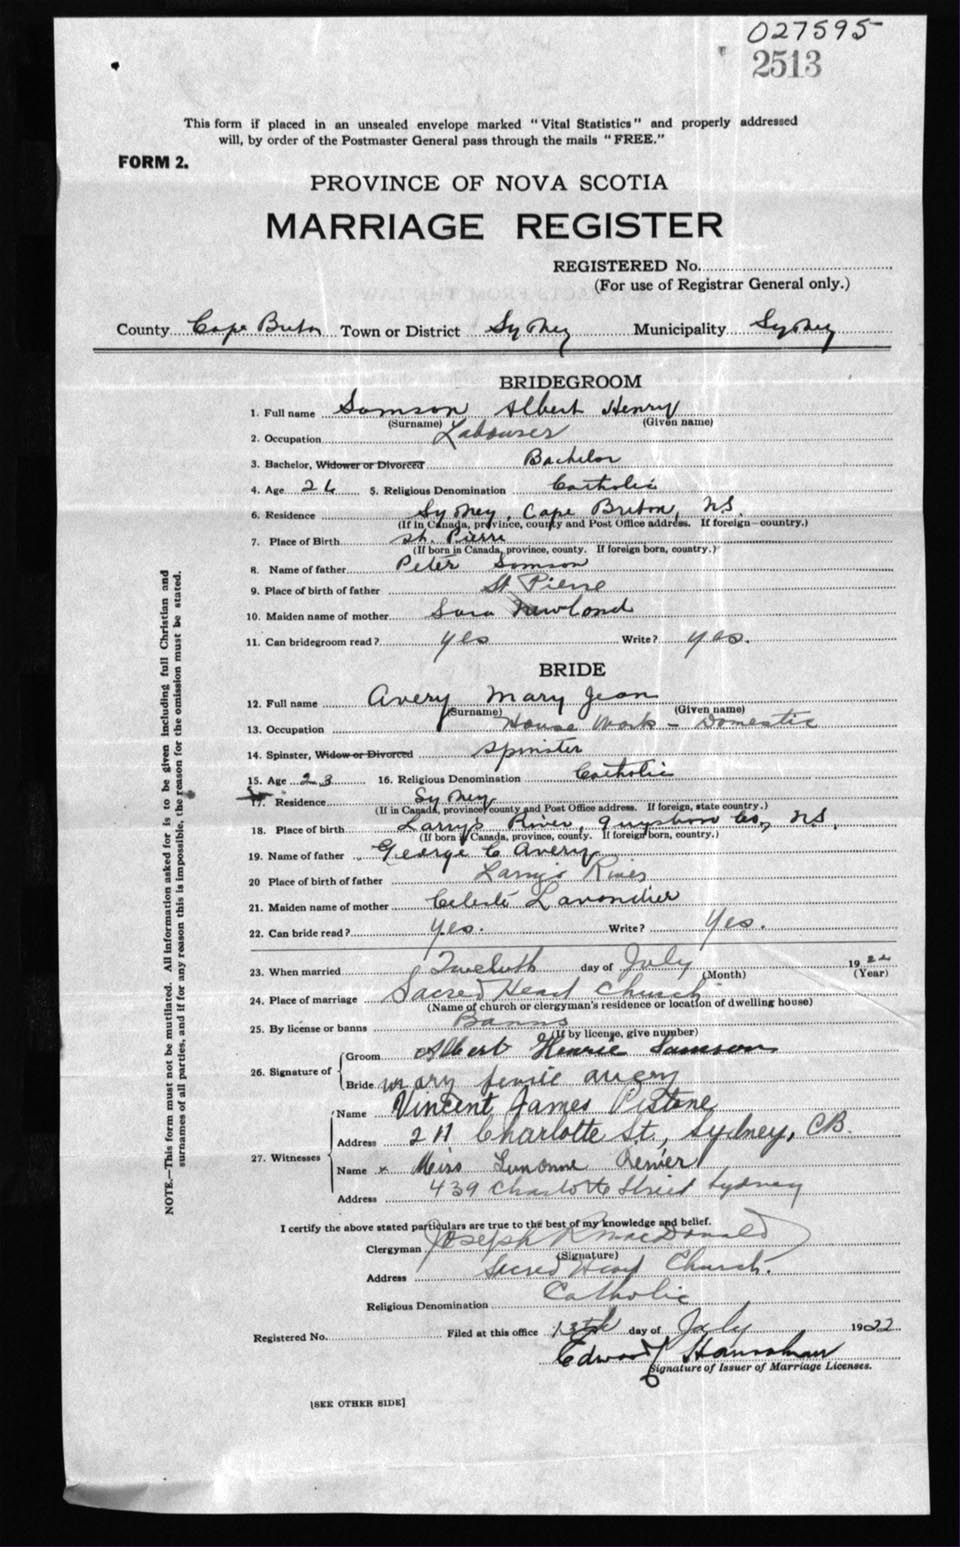 027595
2513
This form if placed in an unsealed envelope marked "Vital Statistics" and properly addressed
will, by order of the Postmaster General pass through the mails "FREE."
FORM 2.
PROVINCE OF NOVA SCOTIA
MARRIAGE REGISTER
REGISTERED No.
(For use of Registrar General only.)
County Cape Breton Town or District Sydney Municipality Sydney
BRIDEGROOM
1. Full name Samson Albert Henry
(Surname) (Given name)
2. Occupation Labourer
3. Bachelor, Widower or Divorced Bachelor
4. Age 26 5. Religious Denomination Catholic
6. Residence Sydney, Cape Breton, NS.
(If in Canada, province, county and Post Office address. If foreign—country.)
7. Place of Birth St. Pierre
(If born in Canada, province, county. If foreign born, country.)
8. Name of father Peter Samson
9. Place of birth of father St Pierre
10. Maiden name of mother Sara
11. Can bridegroom read? yes Write? yes.
BRIDE
12. Full name Avery Mary Jean
(Surname) (Given name)
13. Occupation House Work - Domestic
14. Spinster, Widow or Divorced Spinster
15. Age 23 16. Religious Denomination Catholic
17. Residence Sydney
(If in Canada, province, county and Post Office address. If foreign, state country.)
18. Place of birth Larry's River, Guysboro Co, NS,
(If born in Canada, province, county. If foreign born, country.)
19. Name of father George C Avery
20 Place of birth of father Larry's River
21. Maiden name of mother Celeste
22. Can bride read? Yes. Write? Yes.
23. When married Twelvth day of July 1922
(Month) (Year)
24. Place of marriage Sacred Heart Church
(Name of church or clergyman's residence or location of dwelling house)
25. By license or banns Banns
(If by license, give number)
26. Signature of
Groom Albert Henrie Samson
Bride Mary Avery
27. Witnesses
Name Vincent James Pistone
Address 211 Charlotte St., Sydney, CB.
Name x Miss
Address 439 Charlotte Street Sydney
I certify the above stated particulars are true to the best of my knowledge and belief.
Clergyman Joseph R MacDonald
(Signature)
Address Sacred Heart Church.
Religious Denomination Catholic
Registered No. Filed at this office 13th day of July 1922
Edward Hanrahan
Signature of Issuer of Marriage Licenses.
[SEE OTHER SIDE]
NOTE.—This form must not be mutilated. All information asked for is to be given including full Christian and
surnames of all parties, and if for any reason this is impossible, the reason for the omission must be stated.